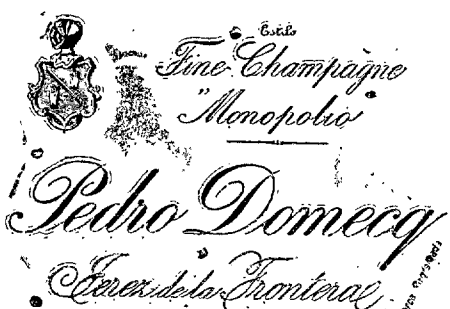 Estilo
Fine Champagne
"Monopolio"
Pedro Domecq
Jerez de la Frontera